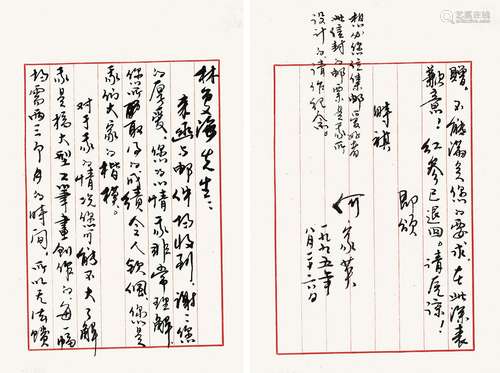 林海先生：
来函与邮件均收到，谢谢您
的厚爱。您的心情我非常理解
您所取得的成绩令人钦佩，您是
我们大家的楷模。
对于我的情况您可能不大了解
我是搞大型工笔画创作的，每一幅
均需两三个月的时间，所以无法馈
赠。不能满您的要求，在此深表
歉意！红参已退回。请原谅！
即颂
时祺
何家英
一九九五年
八月二十六日
想必您位集邮爱好者
此信封的邮票是我所
设计的，请作纪念。